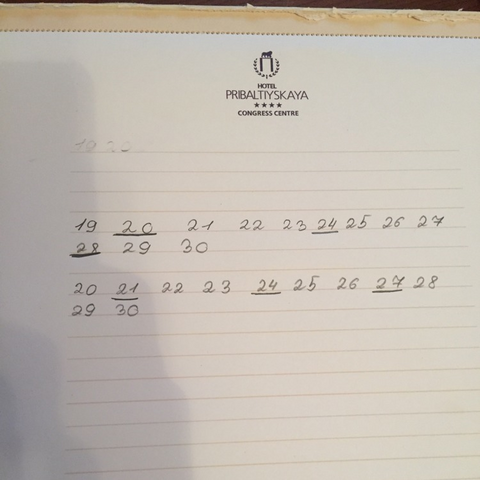 HOTEL
PRIBALTIYSKAYA
★★★★
CONGRESS CENTRE
19 20
19 20 21 22 23 24 25 26 27
28 29 30
20 21 22 23 24 25 26 27 28
29 30